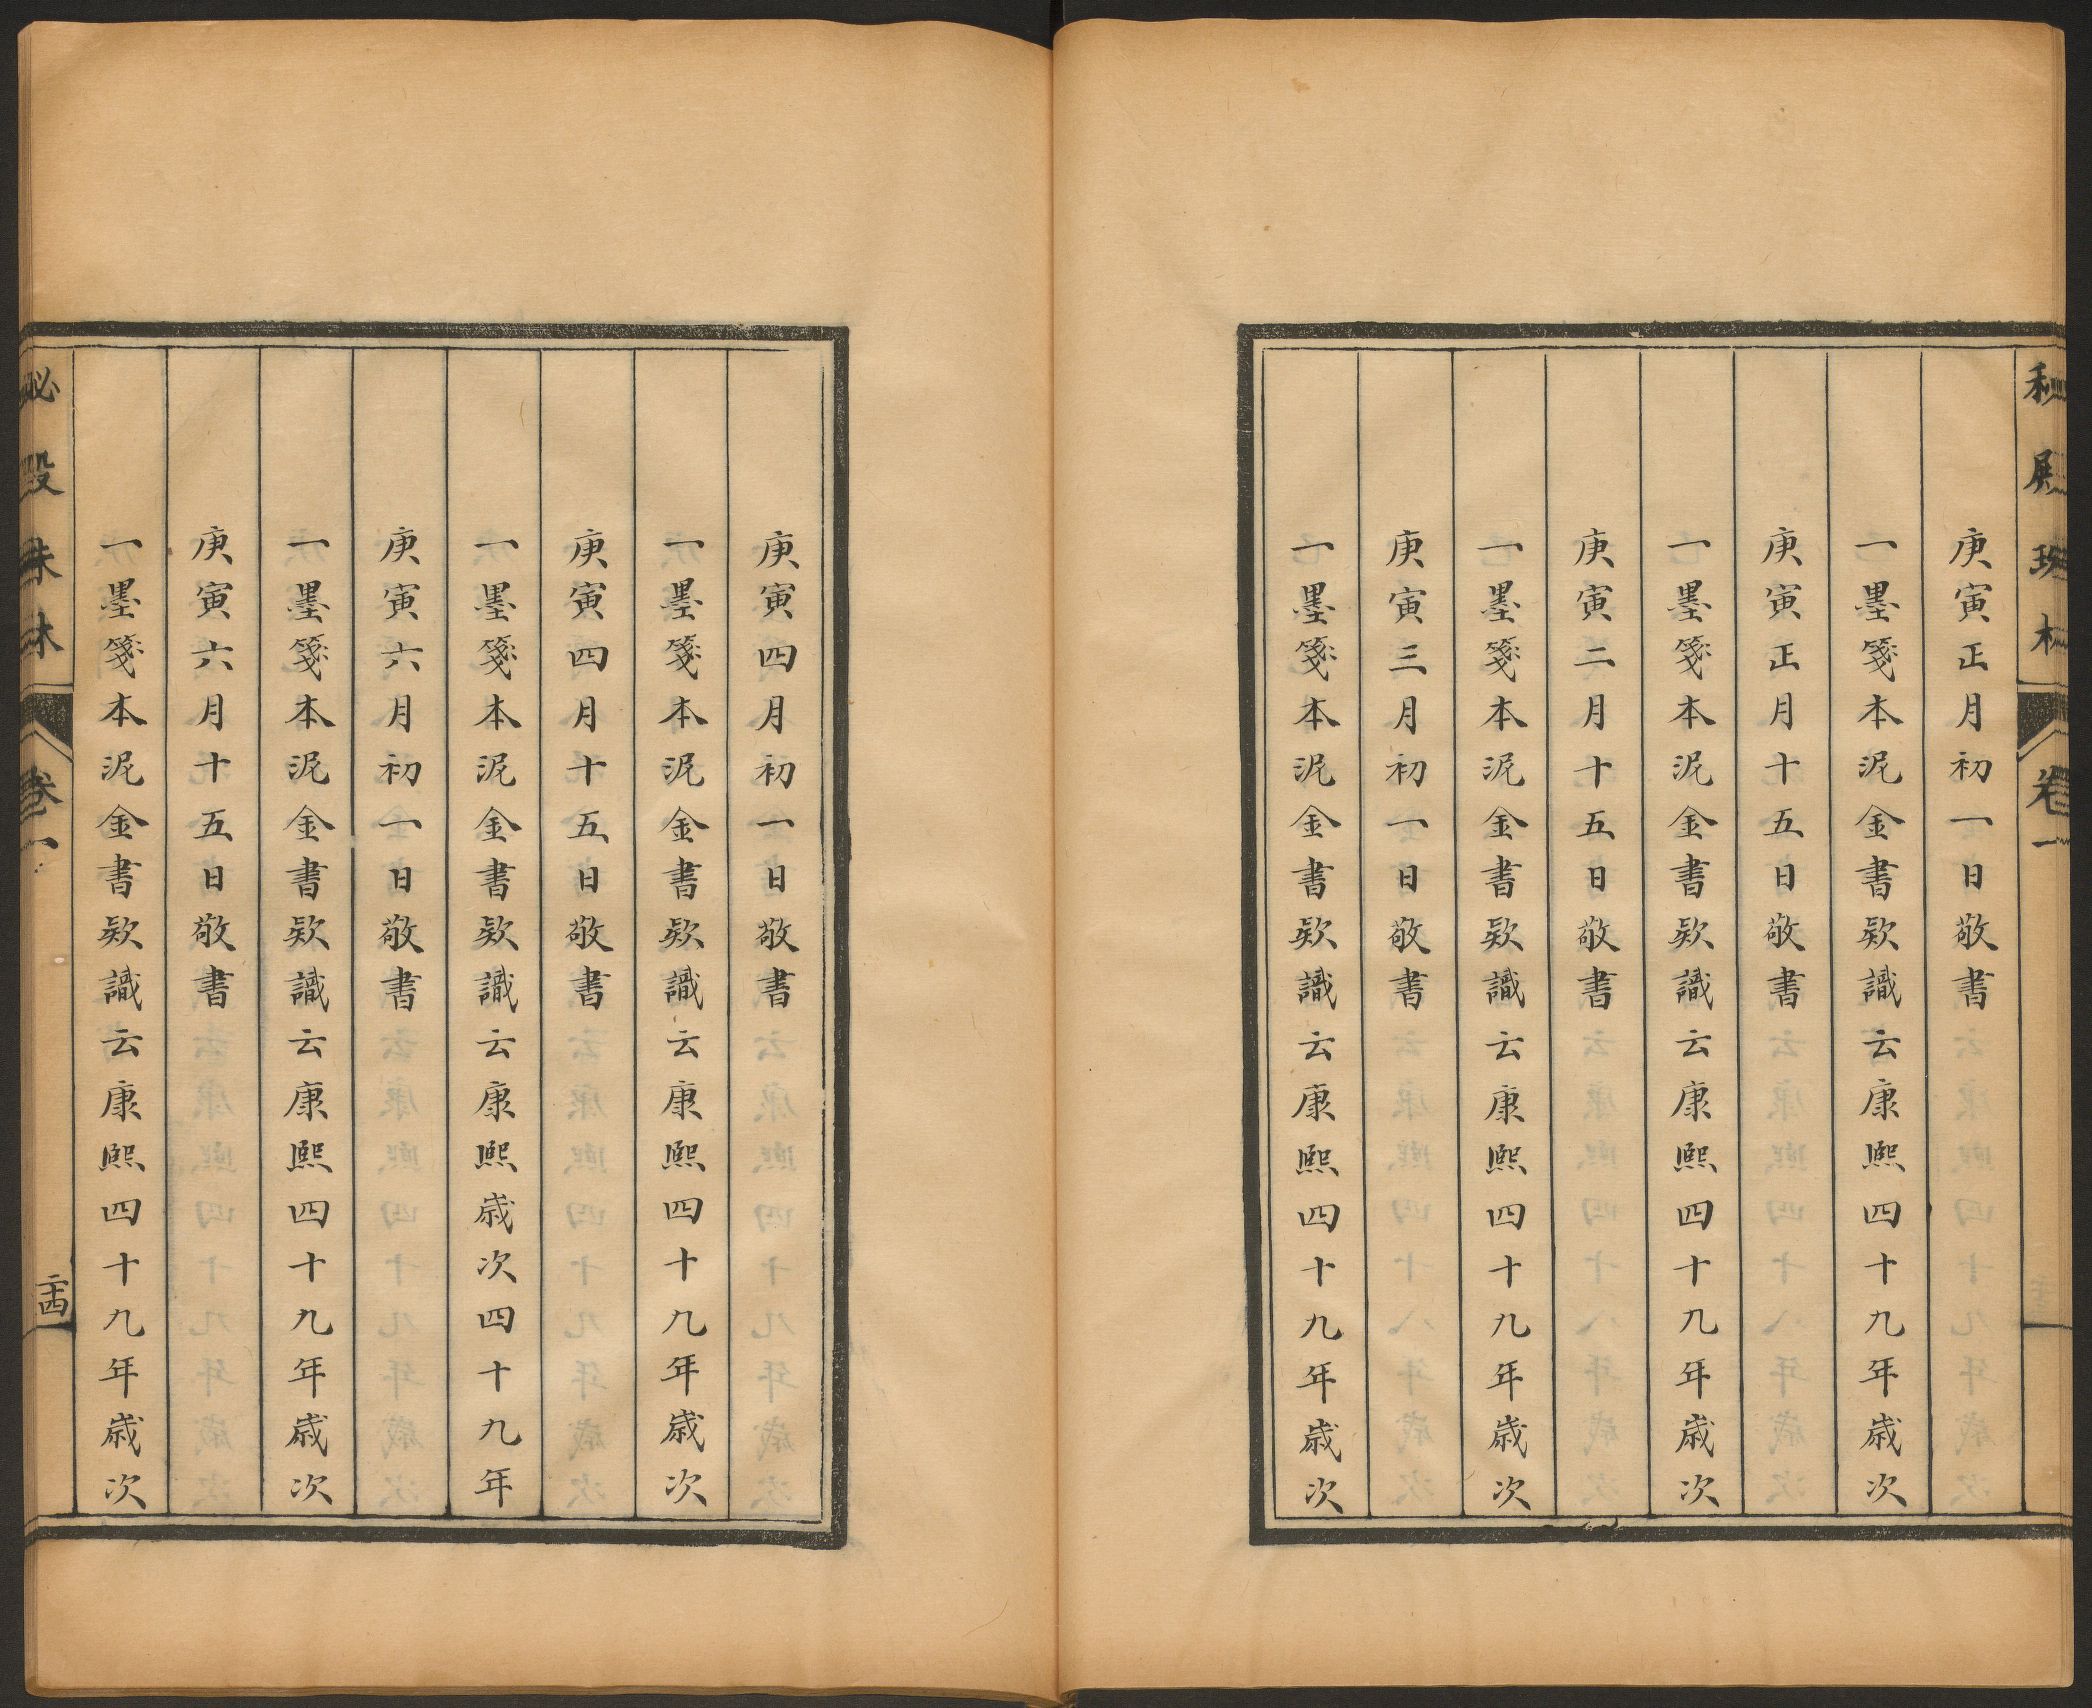 秘殿珠林
卷一
庚寅正月初一日敬書
一墨箋本泥金書欵識云康熙四十九年歲次
庚寅正月十五日敬書
一墨箋本泥金書欵識云康熙四十九年歲次
庚寅二月十五日敬書
一墨箋本泥金書欵識云康熙四十九年歲次
庚寅三月初一日敬書
一墨箋本泥金書欵識云康熙四十九年歲次
庚寅四月初一日敬書
一墨箋本泥金書欵識云康熙四十九年歲次
庚寅四月十五日敬書
一墨箋本泥金書欵識云康熙歲次四十九年
庚寅六月初一日敬書
一墨箋本泥金書欵識云康熙四十九年歲次
庚寅六月十五日敬書
一墨箋本泥金書欵識云康熙四十九年歲次
秘殿珠林
卷一
二十四